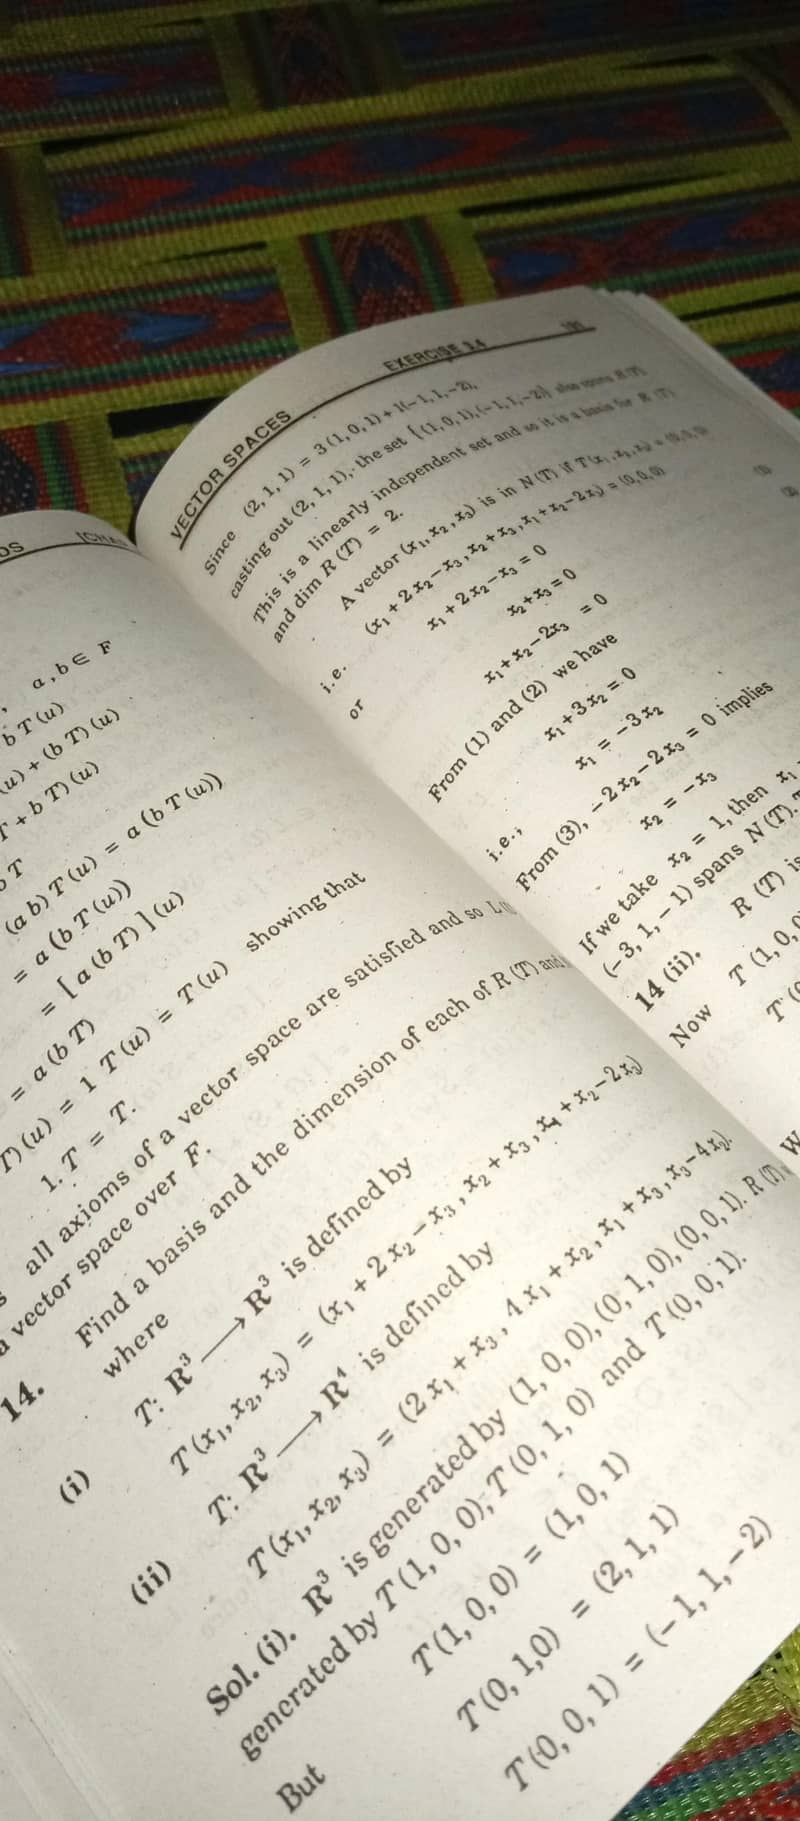 OS [CHA
, a, b ∈ F
b T (u)
(u) + (b T) (u)
T + b T) (u)
b T
(a b) T (u) = a (b T (u))
= a (b T (u))
= [ a (b T) ] (u)
= a (b T)
T) (u) = 1 T (u) = T (u) showing that
1. T = T.
all axioms of a vector space are satisfied and so L
a vector space over F.
14. Find a basis and the dimension of each of R (T) and
where
(i) T: R³ ⟶ R³ is defined by
T (x₁, x₂, x₃) = (x₁ + 2 x₂ − x₃, x₂ + x₃, x₁ + x₂ − 2 x₃)
(ii) T: R³ ⟶ R⁴ is defined by
T (x₁, x₂, x₃) = (2 x₁ + x₃, 4 x₁ + x₂, x₁ + x₃, x₃ − 4 x₂).
Sol. (i). R³ is generated by (1, 0, 0), (0, 1, 0), (0, 0, 1). R (T)
generated by T (1, 0, 0), T (0, 1, 0) and T (0, 0, 1).
But T (1, 0, 0) = (1, 0, 1)
T (0, 1,0) = (2, 1, 1)
T (0, 0, 1) = (−1, 1, −2)
VECTOR SPACES EXERCISE 3.4 191
Since (2, 1, 1) = 3 (1, 0, 1) + 1(−1, 1, −2),
casting out (2, 1, 1), the set {(1, 0, 1), (−1, 1, −2)} also spans R (T).
This is a linearly independent set and so it is a basis for R (T)
and dim R (T) = 2.
A vector (x₁, x₂, x₃) is in N (T) if T (x₁, x₂, x₃) = (0, 0, 0)
i.e. (x₁ + 2 x₂ − x₃, x₂ + x₃, x₁ + x₂ − 2x₃) = (0, 0, 0)
or x₁ + 2 x₂ − x₃ = 0 (1)
x₂ + x₃ = 0 (2)
x₁ + x₂ − 2x₃ = 0
From (1) and (2) we have
x₁ + 3 x₂ = 0
i.e., x₁ = −3 x₂
From (3), − 2 x₂ − 2 x₃ = 0 implies
x₂ = − x₃
If we take x₂ = 1, then x₁
(−3, 1, −1) spans N (T).
14 (ii). R (T) is
Now T (1, 0, 0
T (0
W